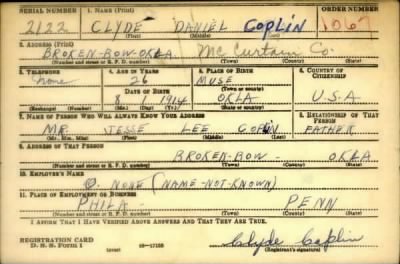 SERIAL NUMBER 1. NAME (Print) ORDER NUMBER
2122 CLYDE DANIEL Coplin 1067
(First) (Middle) (Last)
2. ADDRESS (Print)
BROKEN-BOW-OKLA. Mc Curtain Co.
(Number and street or R. F. D. number) (Town) (County) (State)
3. TELEPHONE 4. AGE IN YEARS 5. PLACE OF BIRTH 6. COUNTRY OF CITIZENSHIP
None 26 MUSE
DATE OF BIRTH (Town or county)
8 1914 OKLA U.S.A
(Exchange) (Number) (Mo.) (Day) (Yr.) (State or country)
7. NAME OF PERSON WHO WILL ALWAYS KNOW YOUR ADDRESS 8. RELATIONSHIP OF THAT PERSON
MR. JESSE LEE COPLIN FATHER
(Mr., Mrs., Miss) (First) (Middle) (Last)
9. ADDRESS OF THAT PERSON
BROKEN-BOW- OKLA
(Number and street or R. F. D. number) (Town) (County) (State)
10. EMPLOYER'S NAME
NONE (NAME-NOT-KNOWN)
11. PLACE OF EMPLOYMENT OR BUSINESS
PHILA- PENN
(Number and street or R. F. D. number) (Town) (County) (State)
I AFFIRM THAT I HAVE VERIFIED ABOVE ANSWERS AND THAT THEY ARE TRUE.
REGISTRATION CARD
D. S. S. FORM 1 16-17105 Clyde Coplin
(Registrant's signature)